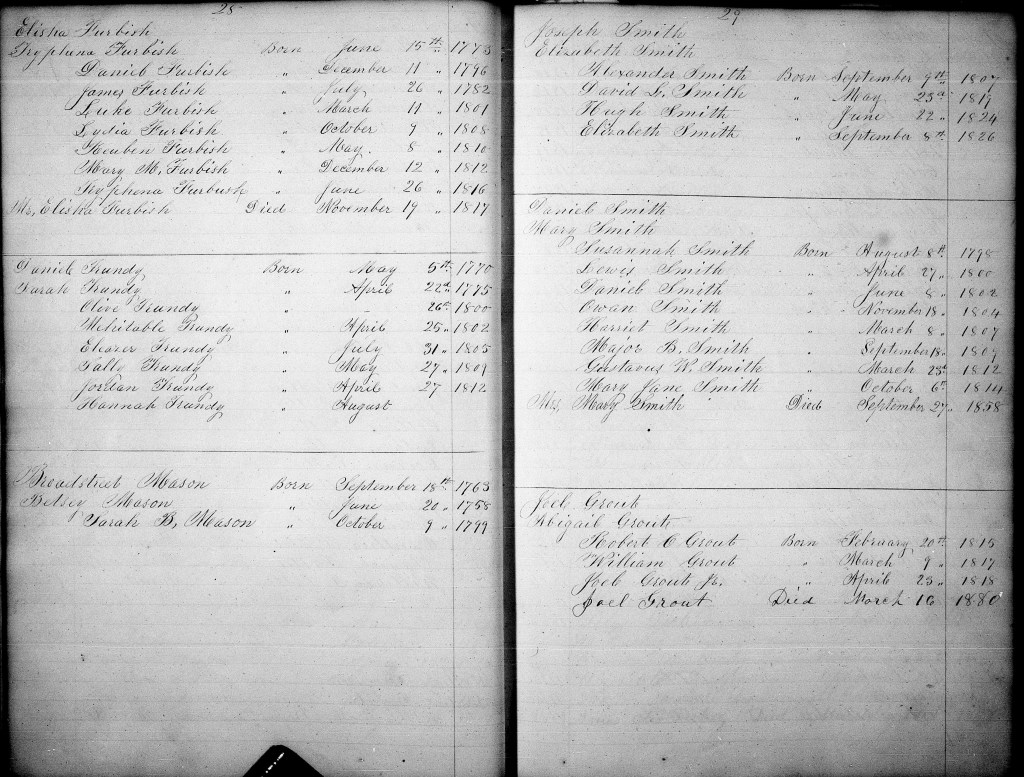 28
Elisha Furbish
Tryphena Furbish Born June 15th " 1773
Daniel Furbish " December 11 " 1796
James Furbish " July 26 " 1782
Luke Furbish " March 11 " 1801
Lydia Furbish " October 9 " 1808
Reuben Furbish " May 8 " 1810
Mary M. Furbish " December 12 " 1812
Tryphena Furbush " June 26 " 1816
Mr. Elisha Furbish Died November 19 " 1817
Daniel Trundy Born May 5th " 1770
Sarah Trundy " April 22d " 1775
Olive Trundy " - 26th 1800
Mehitable Trundy " April 25 " 1802
Eleazer Trundy " July 31 " 1805
Sally Trundy " May 27 " 1809
Jordan Trundy " April 27 1812
Hannah Trundy " August
Broadstreet Mason Born September 18th 1763
Betsey Mason " June 20 " 1758
Sarah B. Mason " October 9 " 1799
29
Joseph Smith
Elizabeth Smith
Alexander Smith Born September 9th 1807
David L. Smith " May 23d 1819
Hugh Smith " June 22 " 1824
Elizabeth Smith " September 8th 1826
Daniel Smith
Mary Smith
Susannah Smith Born August 8th 1798
Lewis Smith " April 27 " 1800
Daniel Smith " June 8 " 1802
Owan Smith " November 18 " 1804
Harriet Smith " March 8 " 1807
Major B. Smith " September 18 " 1809
Gustavus W. Smith " March 23d 1812
Mary Jane Smith " October 6th 1814
Mrs. Mary Smith Died September 27 " 1858
Joel Grout
Abigail Grout
Robert C Grout Born February 20th 1815
William Grout " March 9 " 1817
Joel Grout Jr. " April 23 " 1818
Joel Grout Died March 16 1880